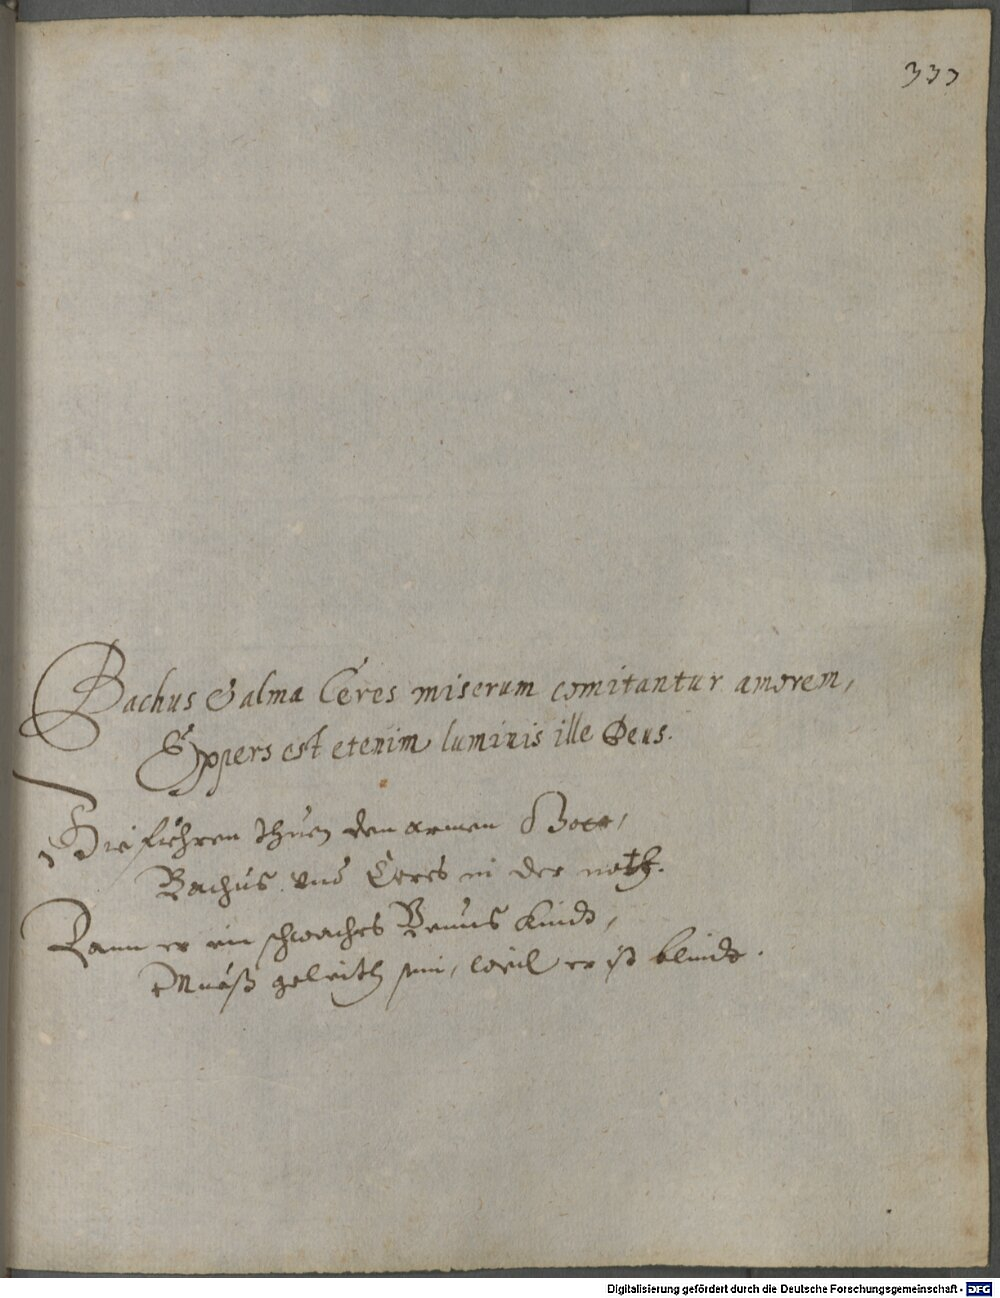 333
Bachus & alma Ceres miserum comitantur amorem,
Expers est etenim luminis ille Deus.
Die führen thuen den armen
Bachus und Ceres in der noth.
Dann er ein schwaches Venus Kindt,
Mueß geleith sein, weil er ist blindt.
Digitalisierung gefördert durch die Deutsche Forschungsgemeinschaft - DFG